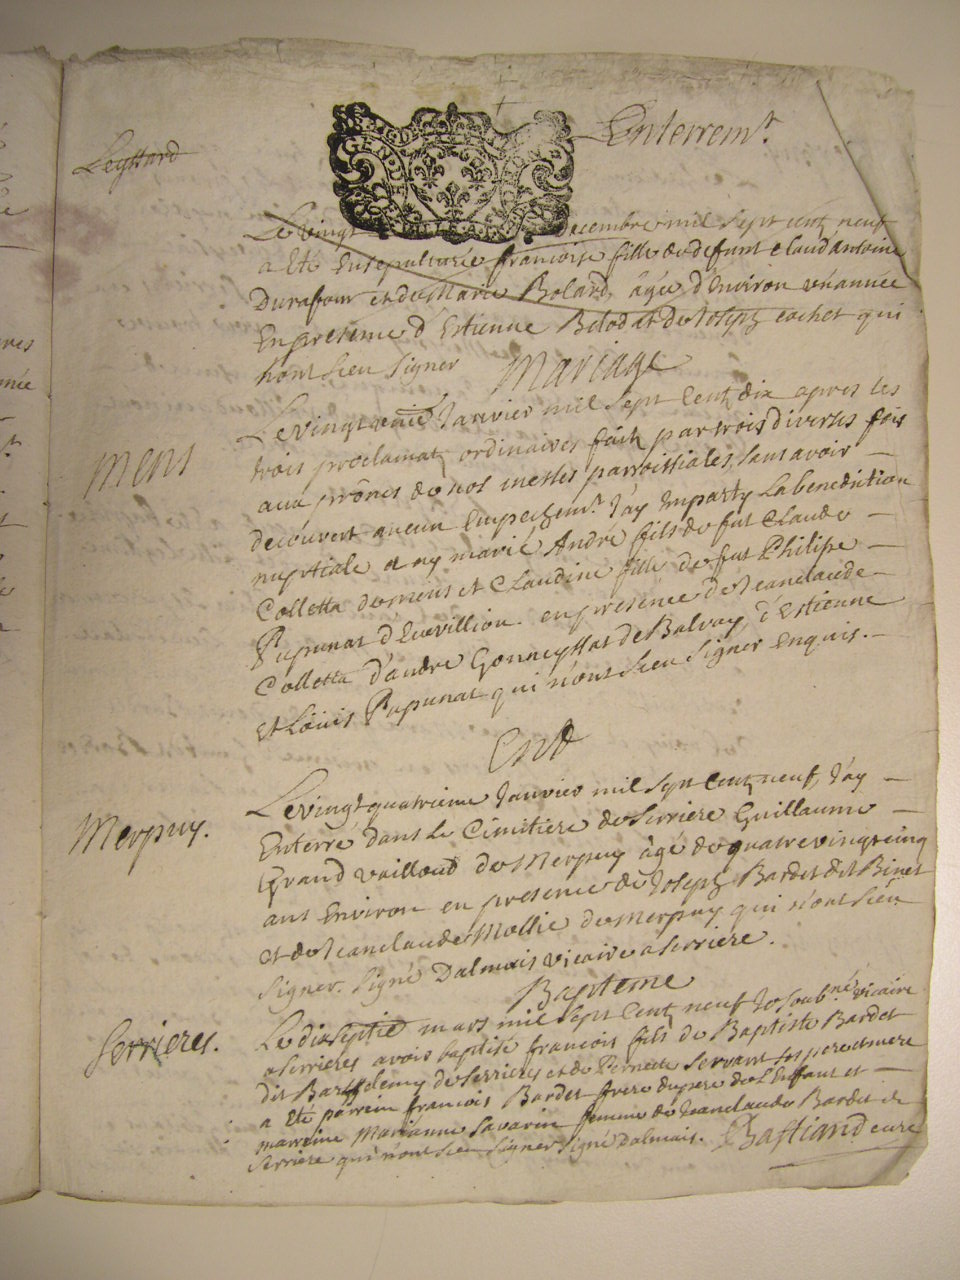 Enterrem.t
Leyssard
Le vingt decembre mil sept cent neuf
a eté ensepulturée francoise fille de defunt Claud Antoine
Durafour et de Marie Bolard, agée d'environ une année
En presence d'Estienne Belod et de Joseph cochet qui
n'ont sceu signer
Mariage
Mens
Le vingt Janvier mil sept cent dix apres les
trois proclamat. ordinaires faites par trois diverses fois
aux prônes de nos messes parroissiales, sans avoir
decouvert aucun Empechem.t J'ay Imparty La benediction
nuptiale et ay marié André fils de fut Claude
Colletta de Mens et Claudine fille de fut Philipe
Pupunat d'Evuillion en presence de Jeanclaude
Colletta d'andre Gonneyssat de Balvay, d'Estienne
et Loüis Pupunat qui n'ont sceu signer enquis.
Ent
Merpuy.
Le vingt quatrieme Janvier mil sept cent neuf, J'ay
Enterré dans Le Cimitiere de Serriere Guillaume
Grand vailloud de Merpuy âgé de quatrevingt cinq
ans Environ en presence de Joseph Bardet dit Binet
et de Jeanclaude Mollie de Merpuy qui n'ont sceu
signer. Signé Dalmais vicaire a Serriere.
Bapteme
Serrieres.
Le dixseptie mars mil sept cent neuf Je soub.né vicaire
a Serrieres avois baptisé francois fils de Baptiste Bardet
dit Barthelemy de Serrieres et de Pernette Servant ses pere et mere
a eté parrein francois Bardet frere du pere de L'Enfant et
marreine Marianne Savarin femme de Jeanclaude Bardet de
Serriere qui n'ont sceu signer Signé Dalmais. Bastiand curé